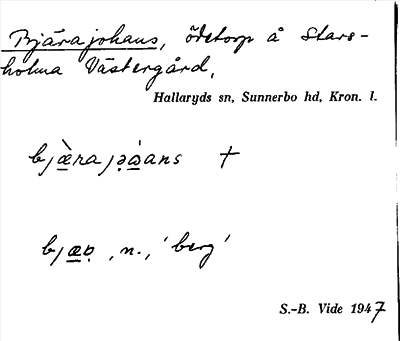 Bjärajohans, ödetorp å Stars-
holma Västergård,
Hallaryds sn, Sunnerbo hd, Kron. l.
bjæ̀rajəa̍ans †
bjæṛ, n., 'berg'
S.-B. Vide 1947